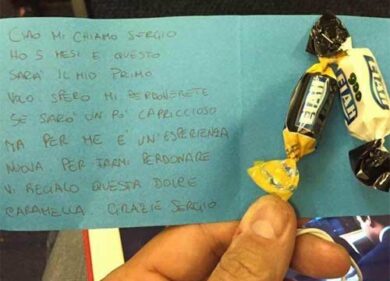 CIAO MI CHIAMO SERGIO
HO 5 MESI E QUESTO
SARA' IL MIO PRIMO
VOLO. SPERO MI PERDONERETE
SE SARO' UN PO' CAPRICCIOSO
MA PER ME E' UN'ESPERIENZA
NUOVA PER FARMI PERDONARE
VI REGALO QUESTA DOLCE
CARAMELLA. GRAZIE SERGIO